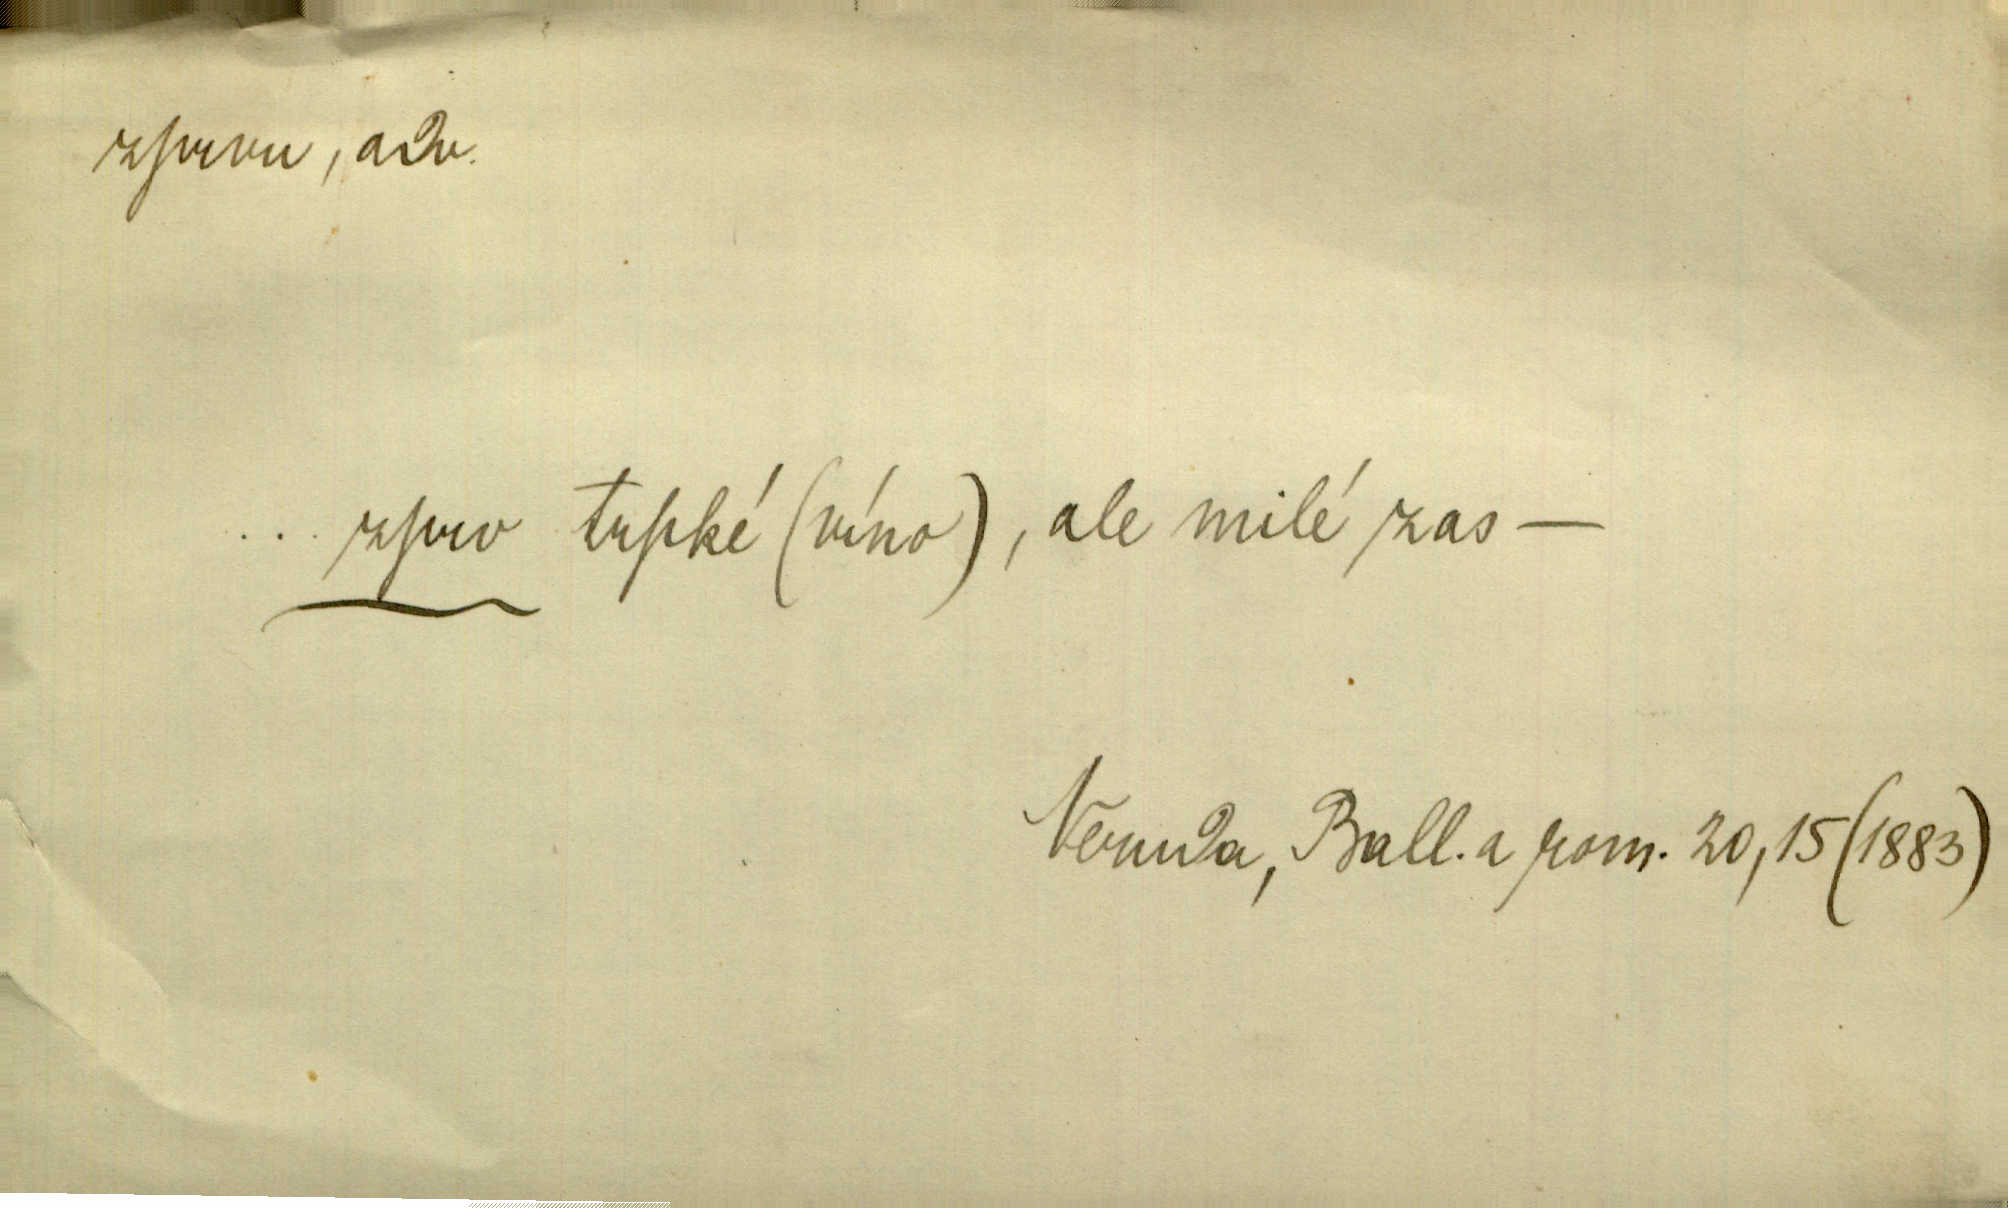 zprvu, adv.
... zprv trpké (víno), ale milé zas —
Neruda, Ball. a rom. 20, 15 (1883)